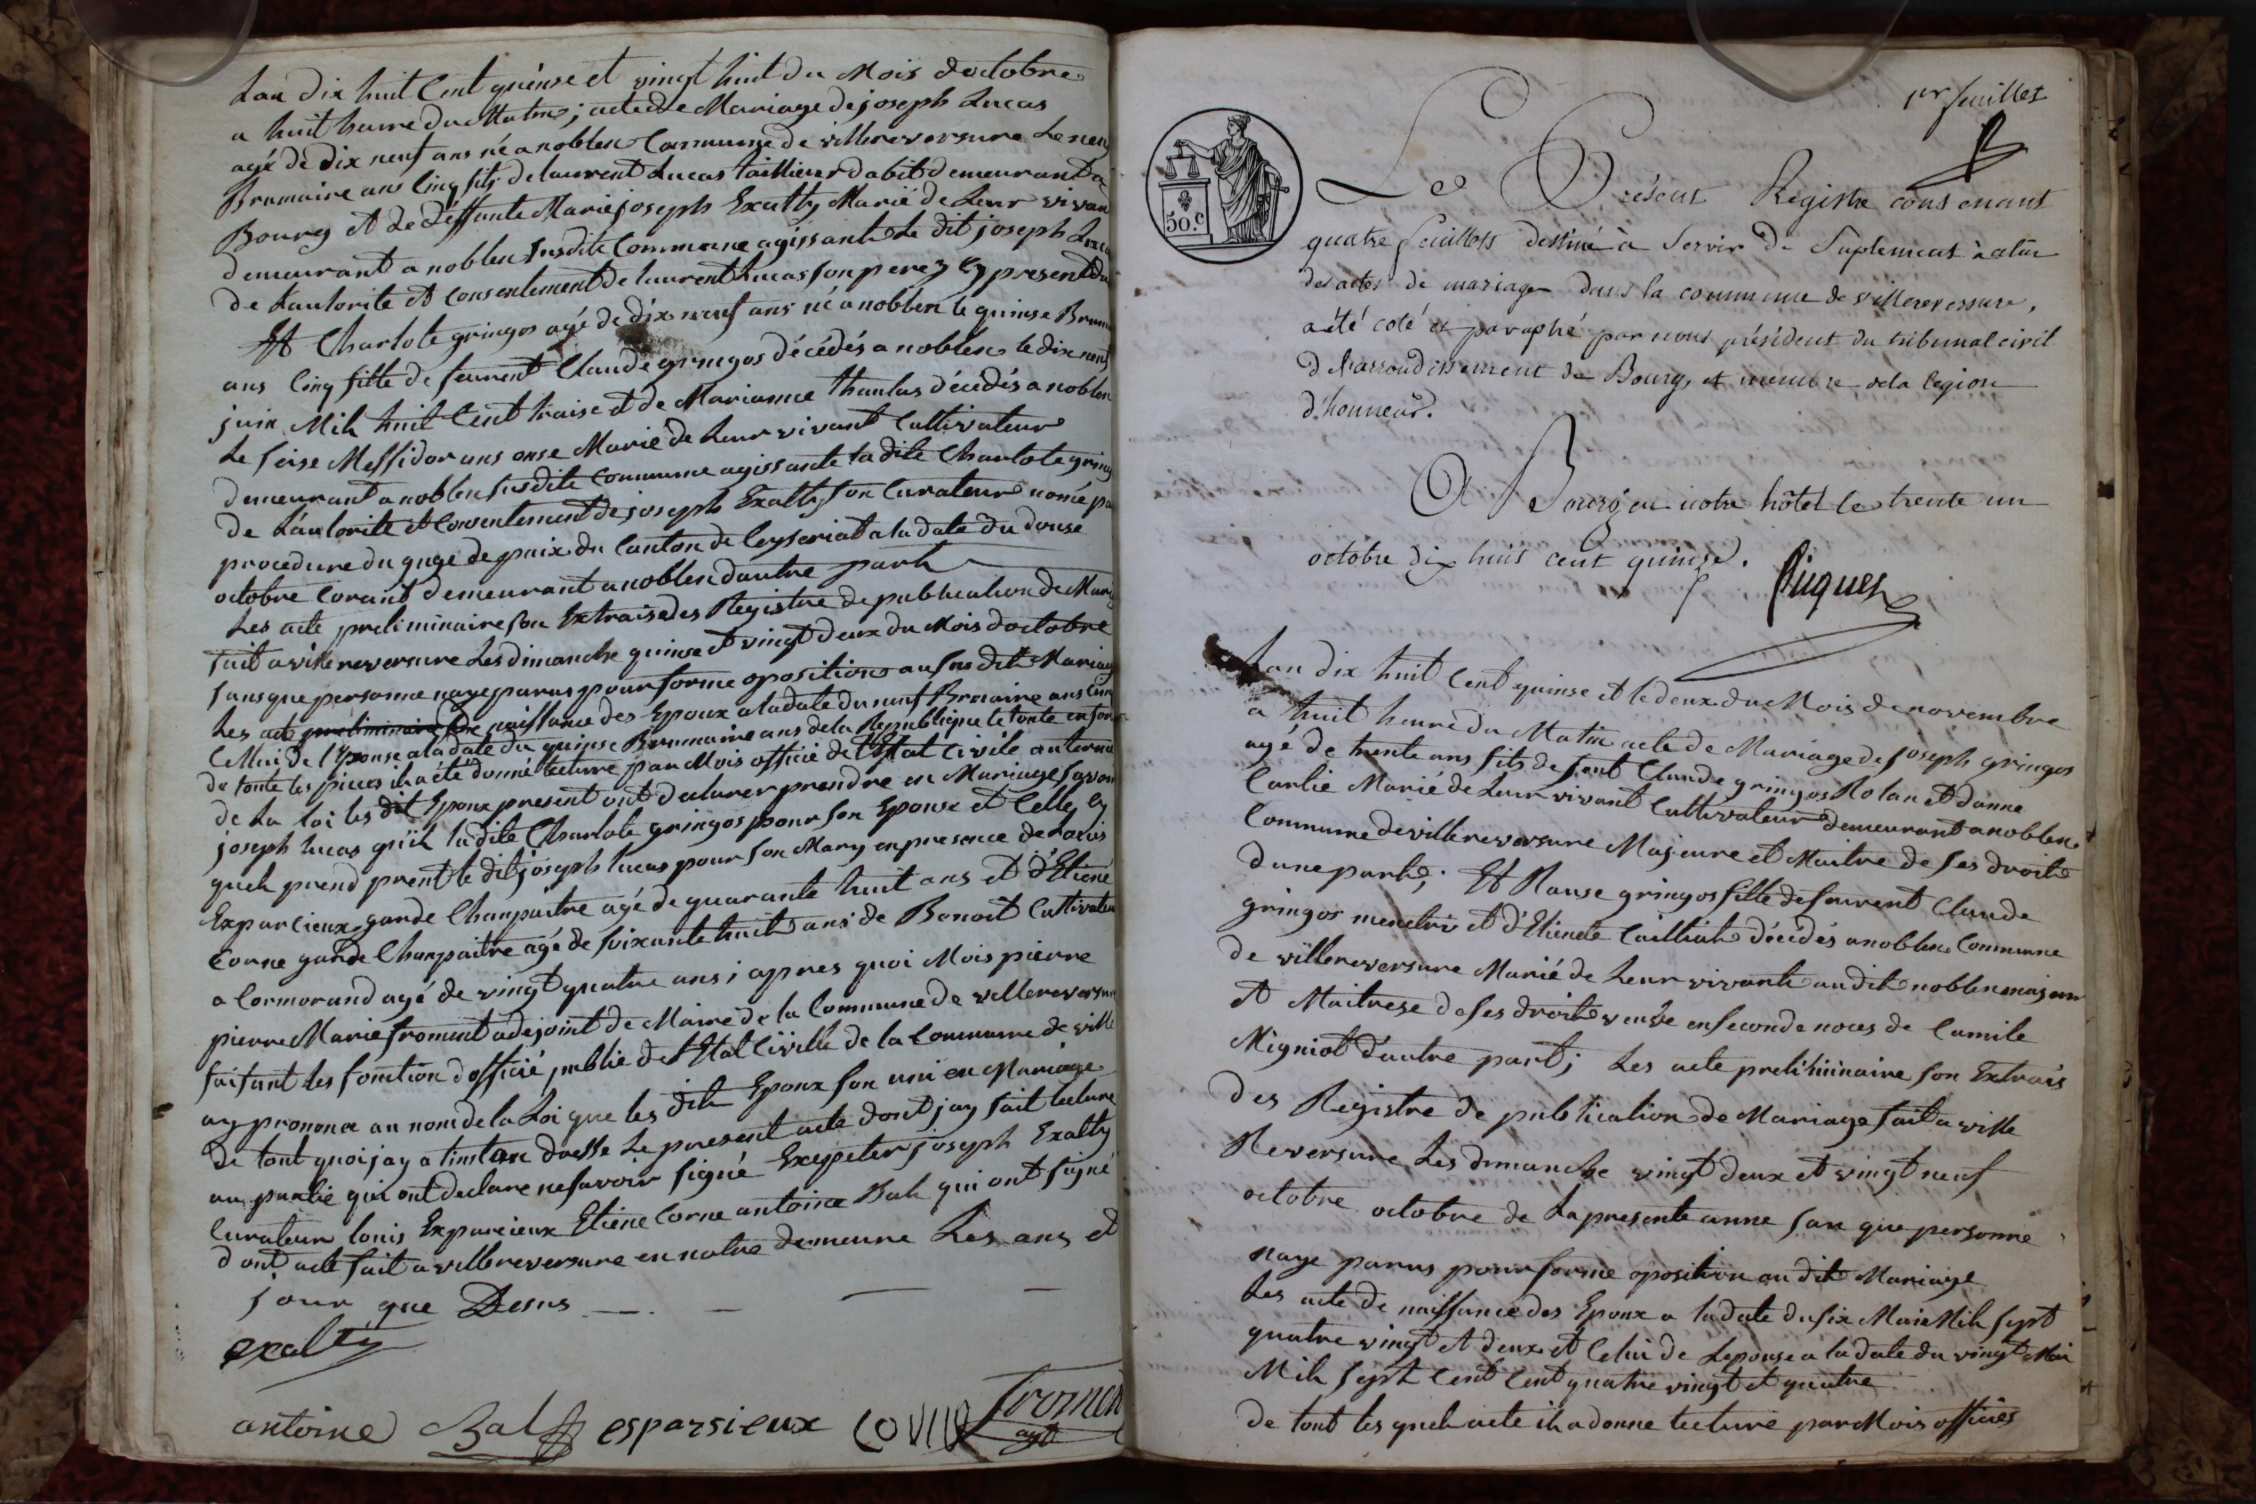 Lan dix huit Cent quinse et vingt huit du Mois doctobre
a huit heure du Matin; acte de Mariage de joseph Lucas
agé de dix neuf ans né a noblen Commune de villereversure Le neuf
Brumaire ans Cinq fils de laurent Lucas taillieur dabit demeurant a
Bourg et de deffunte Marie joseph Exalty Marié de Leur vivan
demeurant a noblen susdite Commune agissant Le dit joseph Luca
de Lautorite et Consentement de laurent Lucas son pere y present
Et Charlote gringos agé de dix neuf ans né a noblen le quinse Brum
ans Cinq fille de feurent Claude gringos décédés a noblen le dix neuf
juin Mil huit Cent traise et de Marianne thanlas décédés a noblen
Le seise Messidor ans onse Marié de Leur vivant Cultivateur
demeurant a noblen susdite Commune agissante ladite Charlote gring
de Lautorite et Consentement de joseph Exalty son Curateur nomé pa
procedure du guge de paix du Canton de Ceyseriat a la date du douse
octobre Corant demeurant a noblen dautre part
Les acte preliminaire son Extraise des Registre de publication de Mari
fait a villereversure Les dimanche quinse et vingt deux du Mois doctobre
sans que personne naye parus pour forme oposition au susdit Mariag
Les acte preliminaire de naissance des Epoux a la date du neuf Brmaire ans Cinq
Celluis de l'Epouse a la date du quinse Brumaire ans de la Republique le toute en for
de toute les pieces il a été donné lecture par Mois officié de l'Etat Civile au terme
de La loi les dit Epoux present ont declarer prendre en Mariage savoir
joseph lucas qu'il ladite Charlote gringos pour son Epouse et Celle Cy
quel prend prent le dit joseph lucas pour son Mary en presence de Louis
Exparcieux garde Champaitre agé de quarante huit ans et d'Etiene
Corne garde Champaitre agé de soixante huit ans de Benoit Cultivateu
a Cormorand agé de vingt quatre ans; apres quoi Mois pierre
pierre Marie froment adejoint de Maire de la Commune de villereversur
faisant les fonction dofficié public de l'Etat Civille de la Commune de ville
ay prononce au nom de la Loi que les dit Epoux son uni en Mariage
de tout quoi jay a linstan dresse Le present acte dont jay fait lecture
au partie qui ont declare ne savoir signé Exepeter joseph Exalty
Curateur louis Exparcieux Etiene Corne antoine Bal qui ont signé
dont acte fait a villereversure en notre demeure Les ans et
jour que Desus
exalty
antoine Bal esparsieux Froment
ayt
1er feuillet
50.c
Le Présent Registre contenant
quatre feuillets destiné à servir de Suplement à celui
des actes de mariage dans la commune de villereverssure,
a été coté et paraphé par nous président du tribunal civil
de l'arrondissement de Bourg, et membre de la legion
d'honneur.
A Bourg en notre hôtel le trente un
octobre dix huit cent quinze.
Piquet
Lan dix huit Cent quinse et le deux du Mois de novembre
a huit heure du Matin acte de Mariage de joseph gringos
agé de trente ans fils de feut Claude gringos Rolan et danne
Carlie Marié de Leur vivant Cultivateur demeurant a noblen
Commune de villereversure Majeure et Maitre de ses droits
dune part; Et Rause gringos fille de feurent Claude
gringos menetrie et d'Etienete Cailliat décédés a noblen Commune
de villereversure Marié de Leur vivant au dit noblen majeure
et Maitrese de ses droite veuve en seconde noces de Camile
Migniot d'autre part; Les acte preliminaire son Extrais
des Registre de publication de Mariage fait a ville
Reversure Les dimanche vingt deux et vingt neuf
octobre octobre de La presente anne san que personne
naye parus pour forme oposition au dit Mariage
Les acte de naissance des Epoux a la date du six Mais Mil sept
quatre vingt et deux et Celui de Lepouse a la date du vingt Mai
Mil sept Cent Cent quatre vingt et quatre
de tout les quel acte il a donne lecture par Mois officies